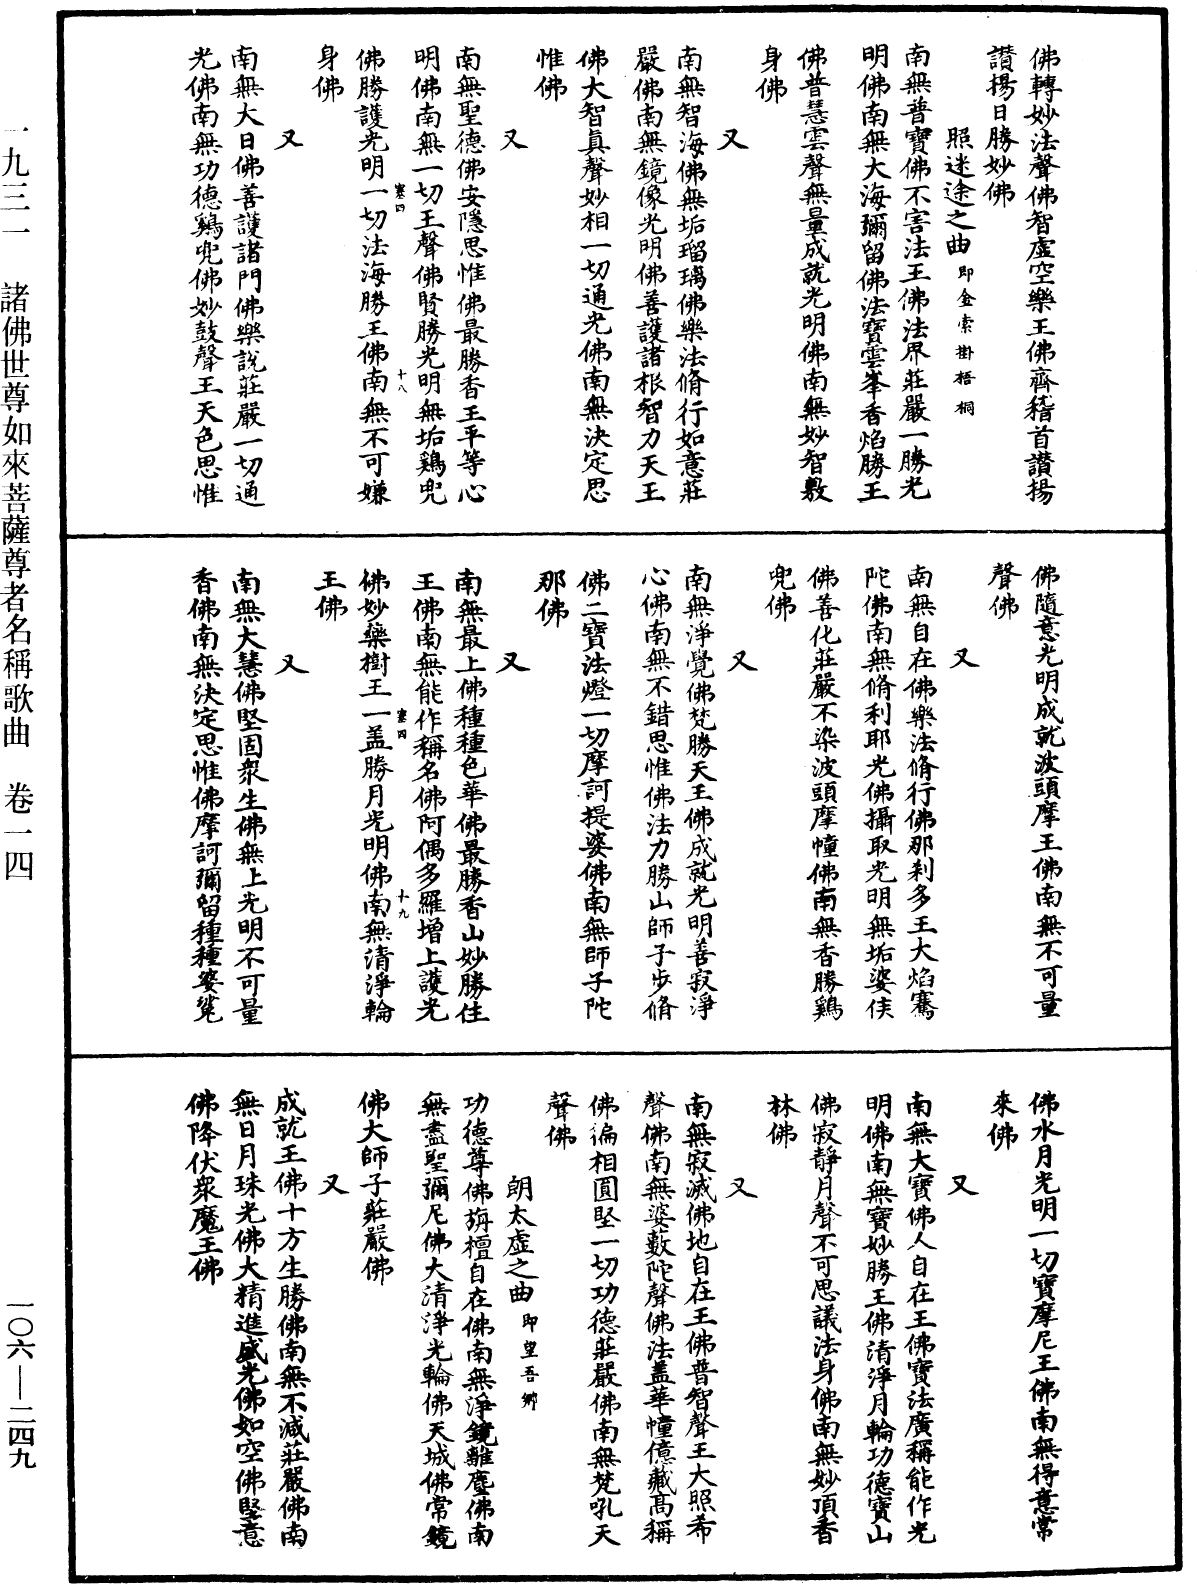 佛轉妙法聲佛智虛空樂王佛齊稽首讚揚
讚揚日勝妙佛
照迷途之曲 即金索掛梧桐
南無普寶佛不害法王佛法界莊嚴一勝光
明佛南無大海彌留佛法寶雲峯香焰勝王
佛普慧雲聲無量成就光明佛南無妙智敷
身佛
又
南無智海佛無垢瑠璃佛樂法脩行如意莊
嚴佛南無鏡像光明佛善護諸根智力天王
佛大智真聲妙相一切通光佛南無決定思
惟佛
又
南無聖德佛安隱思惟佛最勝香王平等心
明佛南無一切王聲佛賢勝光明無垢鷄兜
佛勝護光明一切法海勝王佛南無不可嫌
身佛
又
南無大日佛善護諸門佛樂說莊嚴一切通
光佛南無功德鷄兜佛妙鼓聲王天色思惟
塞四 十八
佛隨意光明成就波頭摩王佛南無不可量
聲佛
又
南無自在佛樂法脩行佛那剎多王大焰鶱
陀佛南無脩利耶光佛攝取光明無垢婆侯
佛善化莊嚴不染波頭摩幢佛南無香勝鷄
兜佛
又
南無淨覺佛梵勝天王佛成就光明善寂淨
心佛南無不錯思惟佛法力勝山師子步脩
佛二寶法燈一切摩訶提婆佛南無師子陀
那佛
又
南無最上佛種種色華佛最勝香山妙勝住
王佛南無能作稱名佛阿偶多羅增上護光
佛妙藥樹王一盖勝月光明佛南無清淨輪
王佛
又
南無大慧佛堅固衆生佛無上光明不可量
香佛南無決定思惟佛摩訶彌留種種婆䇿
塞四 十九
佛水月光明一切寶摩尼王佛南無得意常
來佛
又
南無大寶佛人自在王佛寶法廣稱能作光
明佛南無寶妙勝王佛清淨月輪功德寶山
佛寂靜月聲不可思議法身佛南無妙頂香
林佛
又
南無寂滅佛地自在王佛普智聲王大照希
聲佛南無婆藪陀聲佛法盖華幢億藏高稱
佛徧相圓堅一切功德莊嚴佛南無梵吼天
聲佛
朗太虛之曲 即望吾鄉
功德尊佛旃檀自在佛南無淨鏡離塵佛南
無盡聖彌尼佛大清淨光輪佛天城佛常鏡
佛大師子莊嚴佛
又
成就王佛十方生勝佛南無不減莊嚴佛南
無日月珠光佛大精進盛光佛如空佛堅意
佛降伏衆魔王佛
一九三一 諸佛世尊如來菩薩尊者名稱歌曲 卷一四
一〇六—二四九